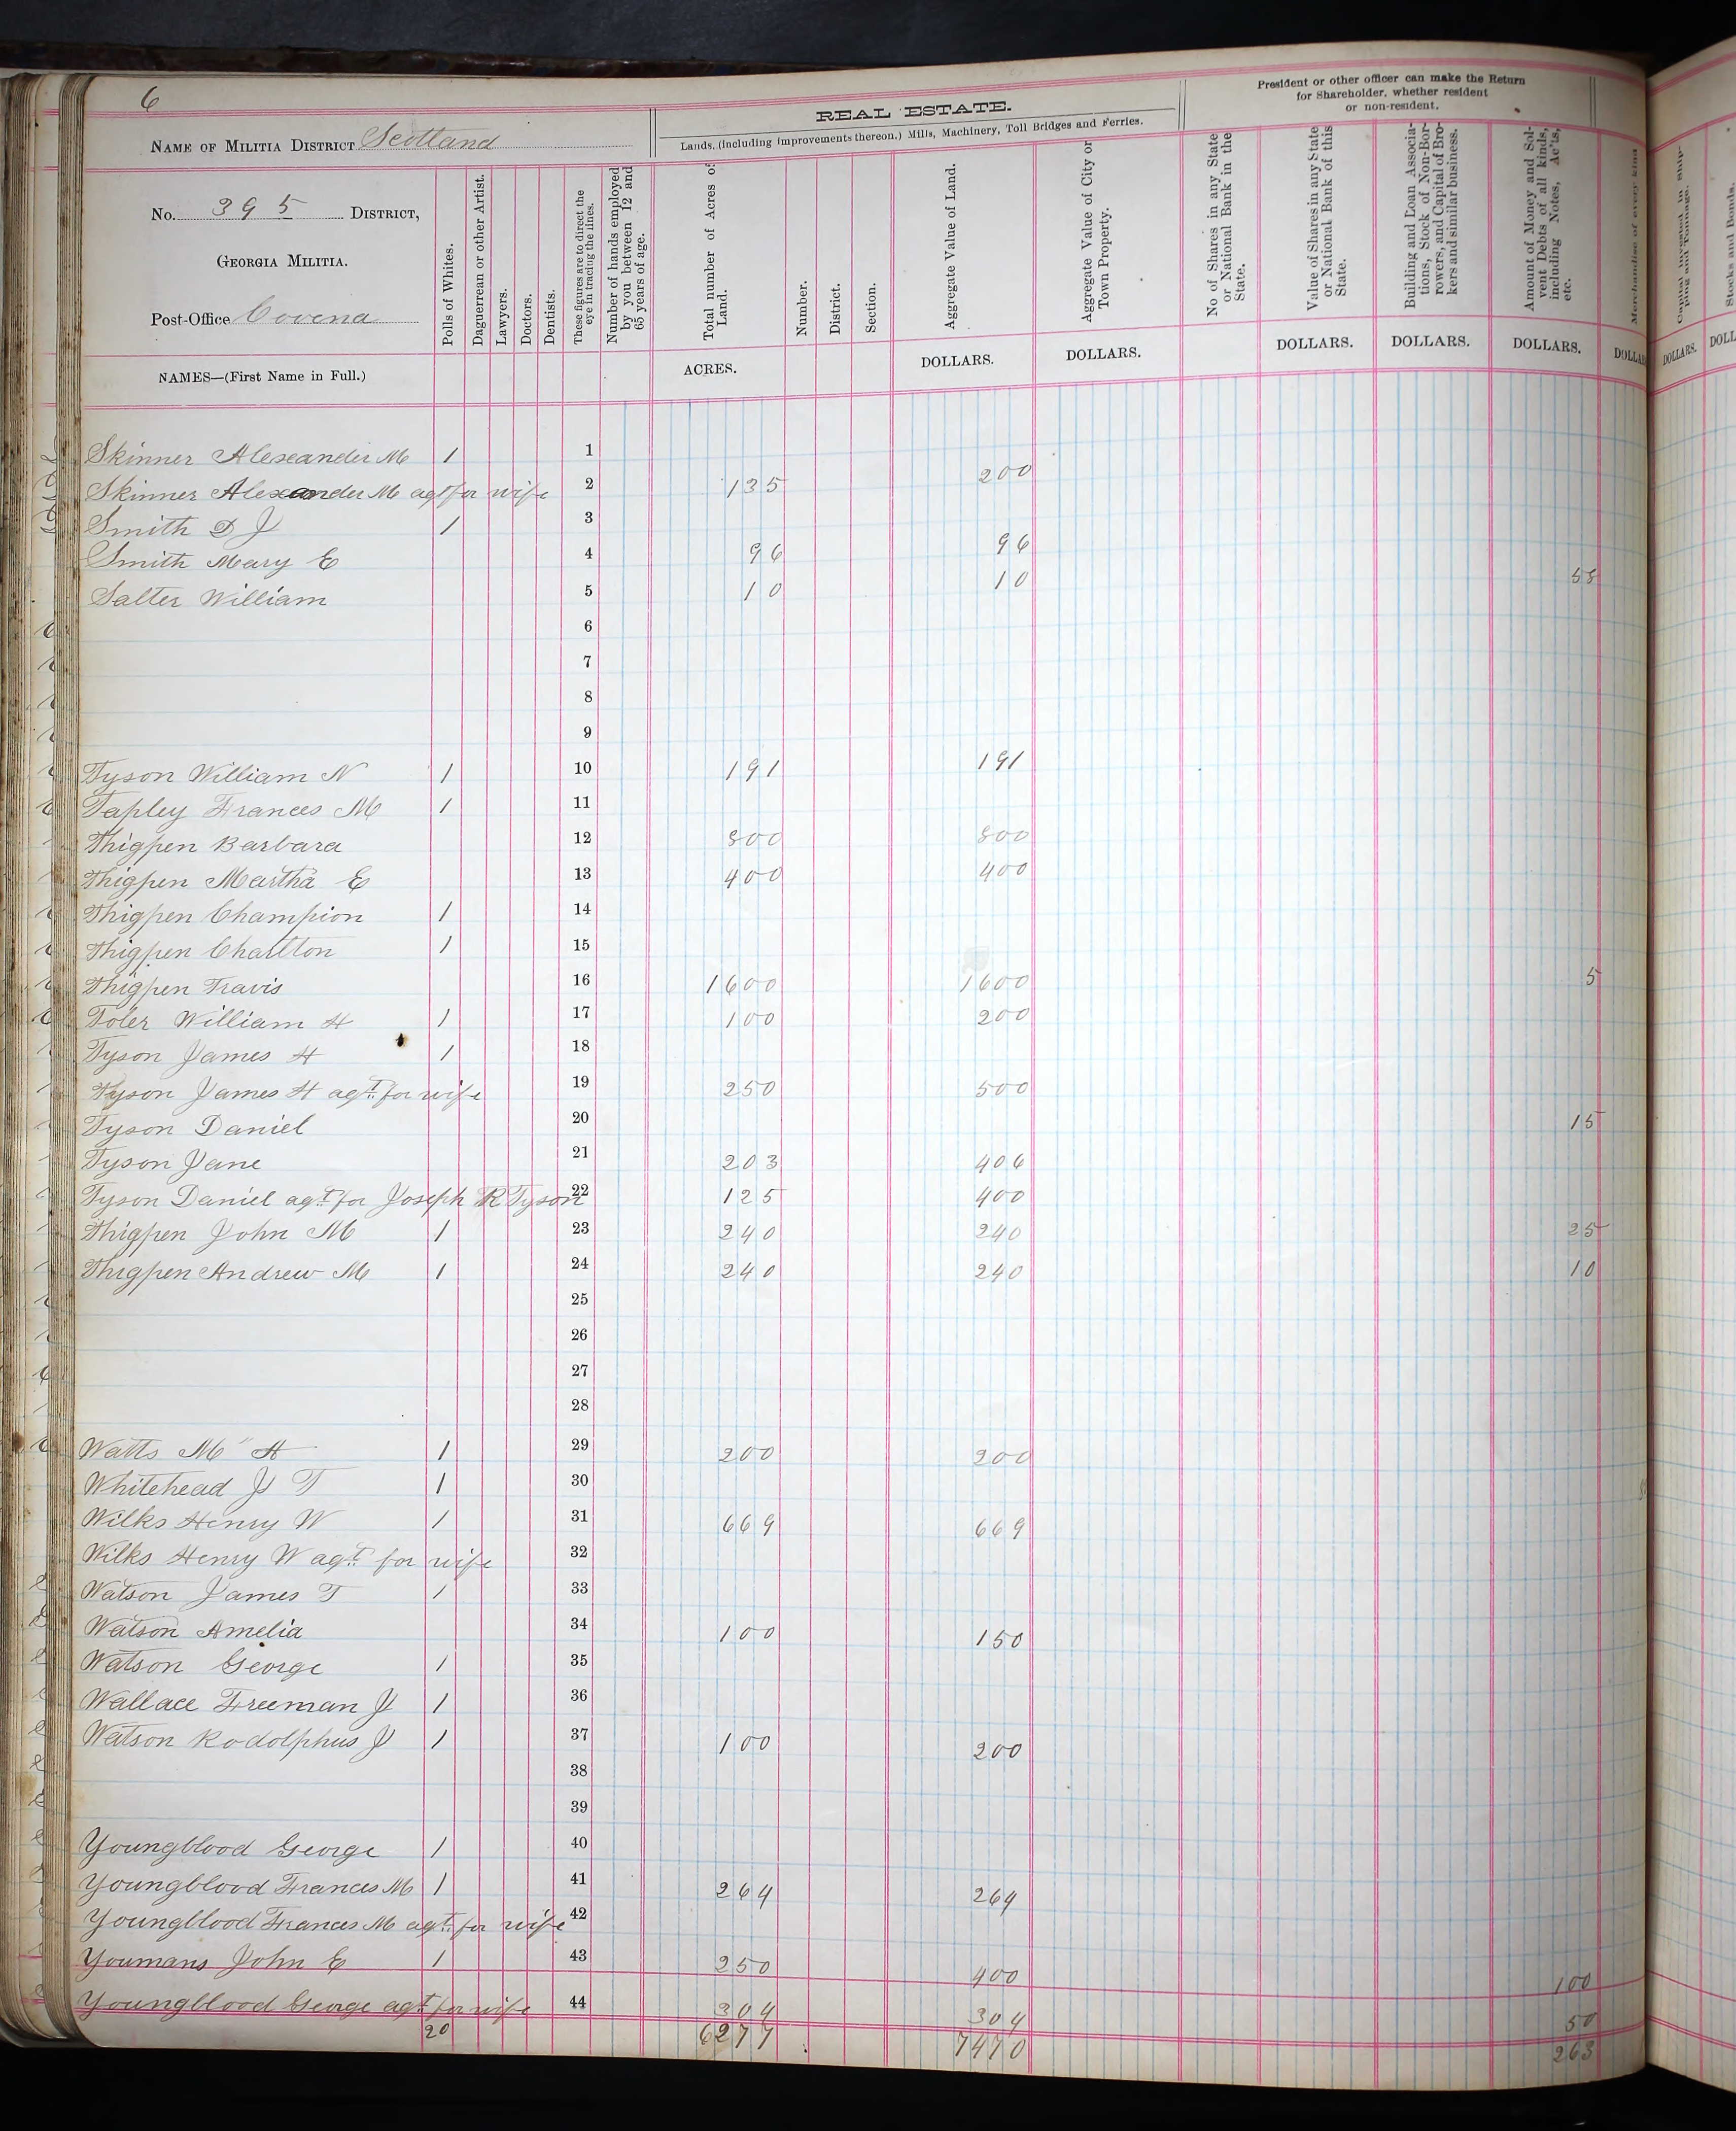 6
NAME OF MILITIA DISTRICT Scotland
No. 395 DISTRICT,
GEORGIA MILITIA.
Post-Office Covena
NAMES—(First Name in Full.)
Polls of Whites.
Daguerrean or other Artist.
Lawyers.
Doctors.
Dentists.
These figures are to direct the eye in tracing the lines.
Number of hands employed by you between 12 and 65 years of age.
REAL ESTATE.
Lands, (including improvements thereon,) Mills, Machinery, Toll Bridges and Ferries.
Total number of Acres of Land.
ACRES.
Number.
District.
Section.
Aggregate Value of Land.
DOLLARS.
Aggregate Value of City or Town Property.
DOLLARS.
President or other officer can make the Return
for Shareholder, whether resident
or non-resident.
No of Shares in any State or National Bank in the State.
Value of Shares in any State or National Bank of this State.
DOLLARS.
Building and Loan Associations, Stock of Non-Borrowers, and Capital of Brokers and similar business.
DOLLARS.
Amount of Money and Solvent Debts of all kinds, including Notes, Ac'ts, etc.
DOLLARS.
Merchandise of every kind
DOLLA
Capital invested in Shipping and Tonnage.
DOLLARS.
Stocks and Bonds.
DOLL
Skinner Alexander M 1 1
Skinner Alexander M agt for wife 2 135 200
Smith D J 1 3
Smith Mary E 4 96 96
Salter William 5 10 10 58
6
7
8
9
Tyson William N 1 10 191 191
Tapley Frances M 1 11
Thigpen Barbara 12 800 800
Thigpen Martha E 13 400 400
Thigpen Champion 1 14
Thigpen Charlton 1 15
Thigpen Travis 16 1600 1600 5
Toler William H 1 17 100 200
Tyson James H 1 18
Tyson James H agt for wife 19 250 500
Tyson Daniel 20 15
Tyson Jane 21 203 406
Tyson Daniel agt for Joseph R Tyson 22 125 400
Thigpen John M 1 23 240 240 25
Thigpen Andrew M 1 24 240 240 10
25
26
27
28
Watts M H 1 29 200 200
Whitehead J T 1 30
Wilks Henry W 1 31 669 669
Wilks Henry W agt for wife 32
Watson James T 1 33
Watson Amelia 34 100 150
Watson George 1 35
Wallace Freeman J 1 36
Watson Rodolphus J 1 37 100 200
38
39
Youngblood George 1 40
Youngblood Frances M 1 41 264 264
Youngblood Frances M agt for wife 42
Youmans John E 1 43 250 400 100
Youngblood George agt for wife 44 304 304 50
20 6277 7470 263